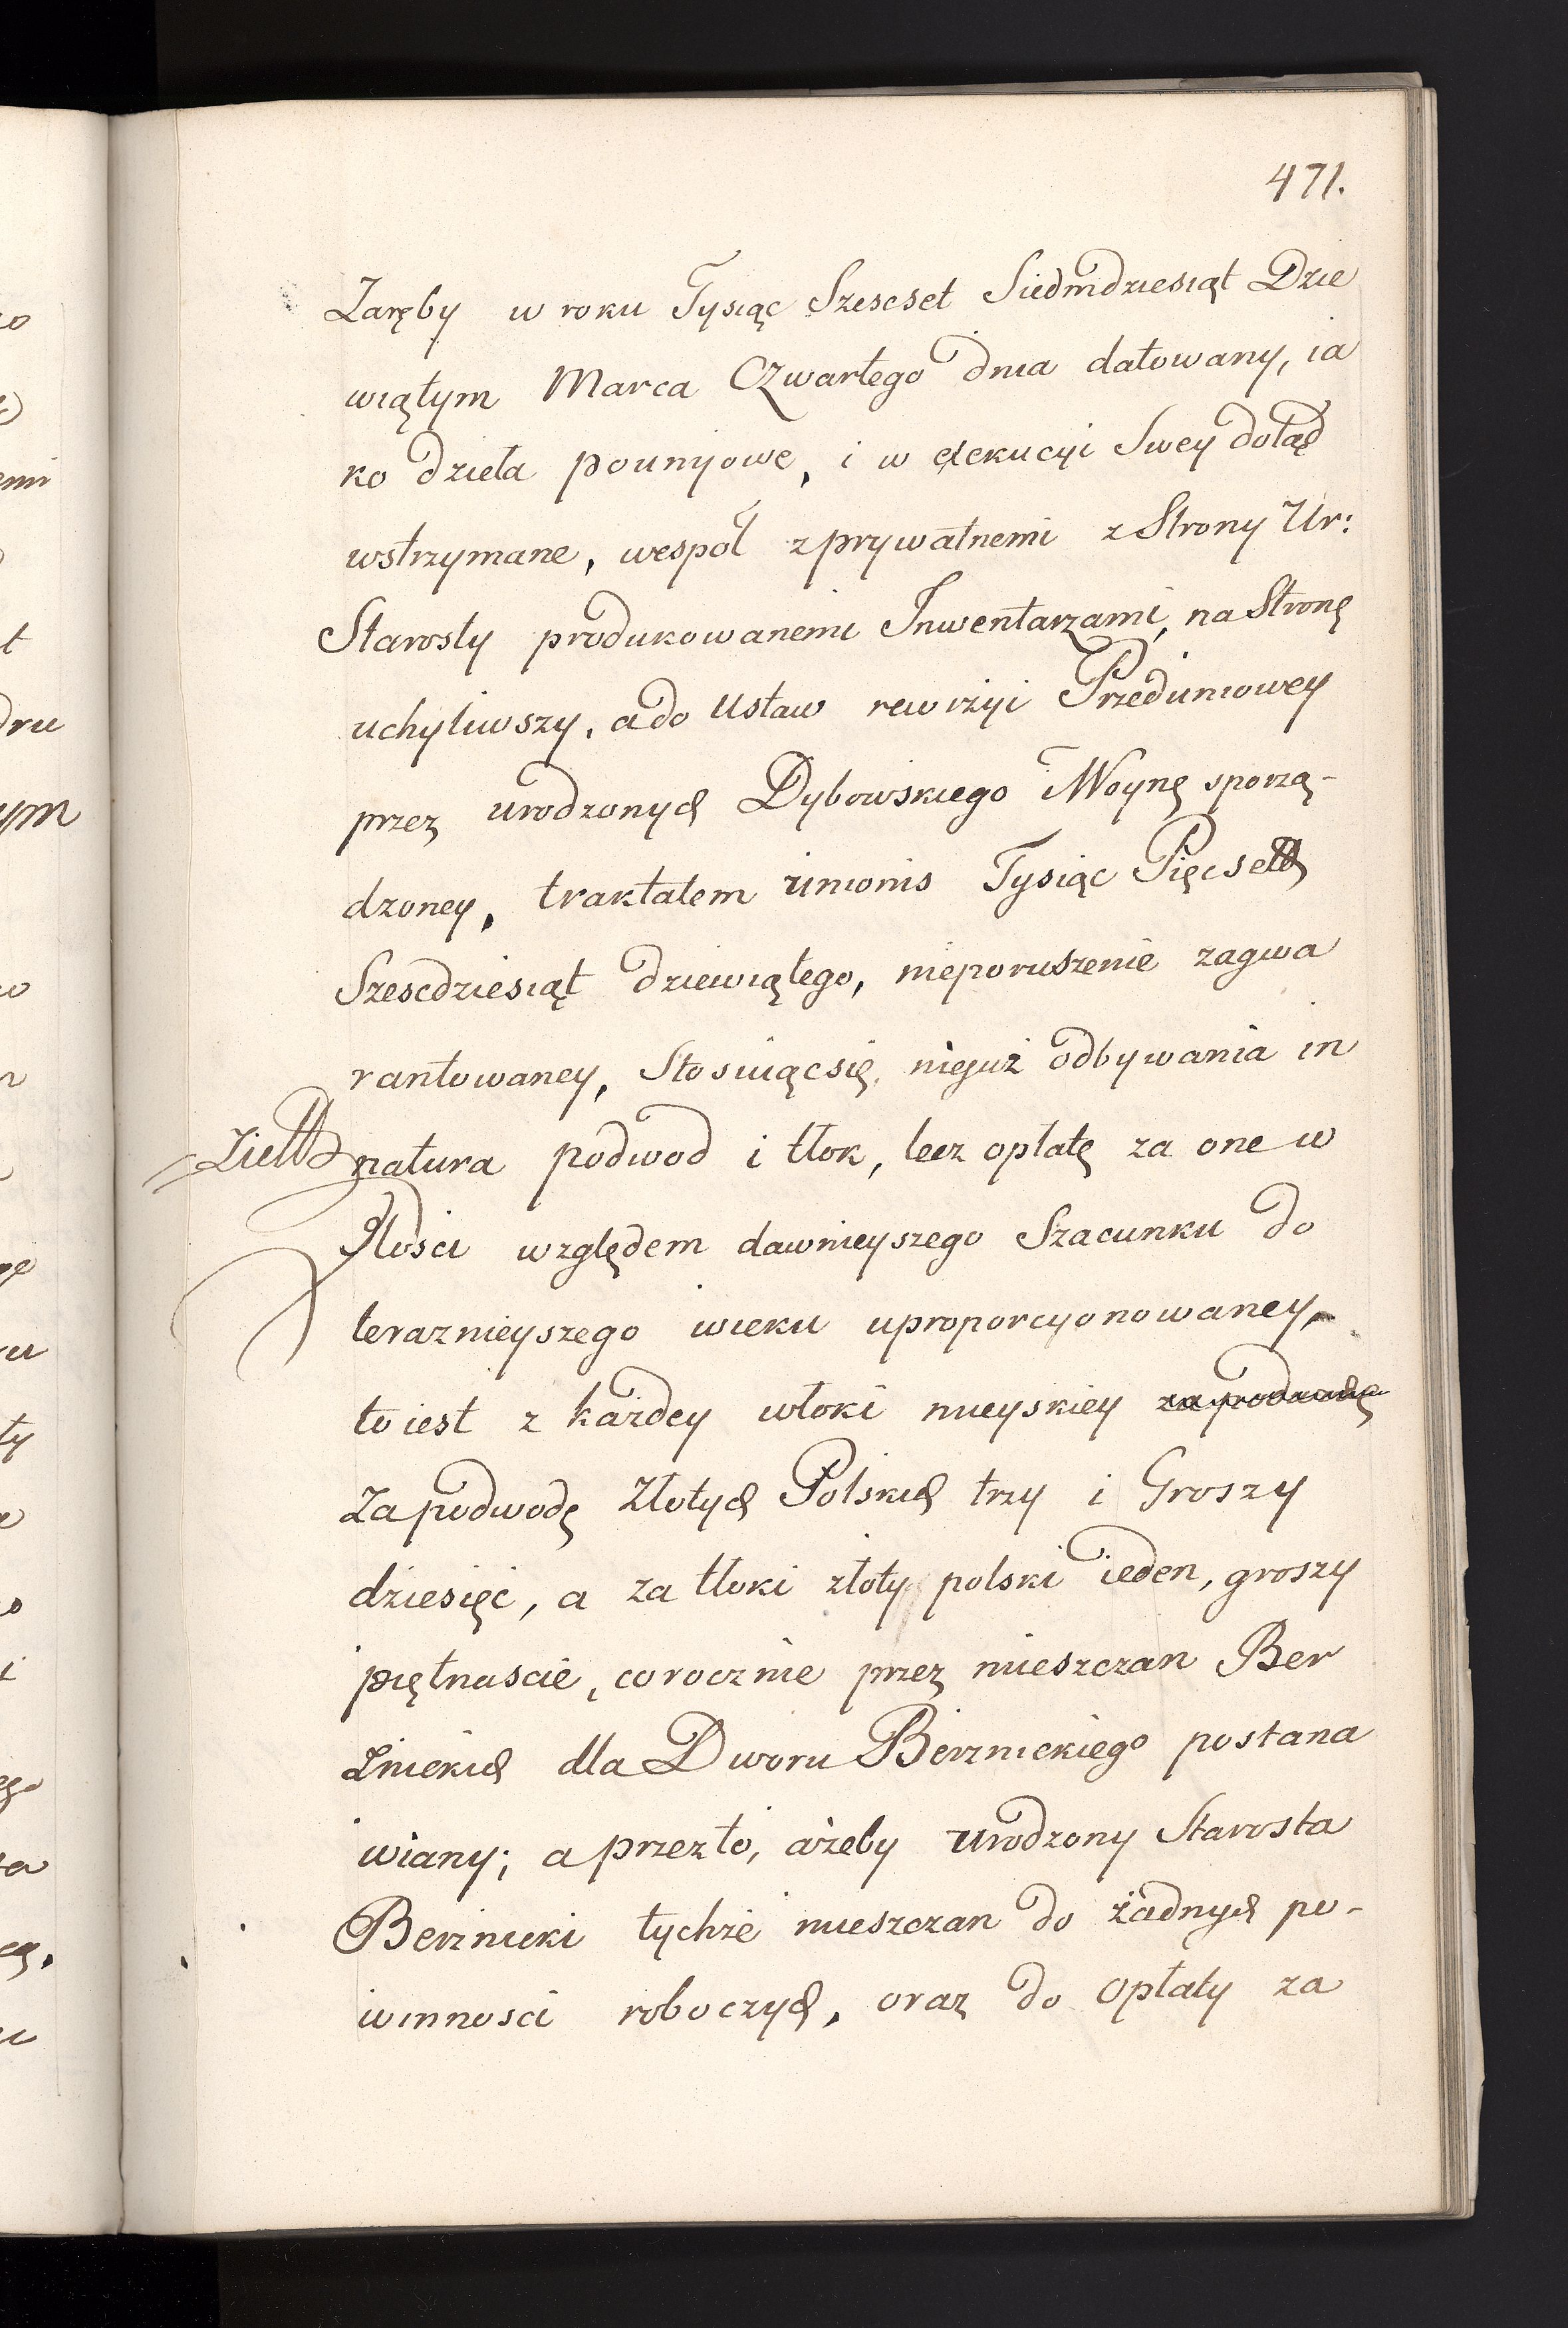 471.
Zaręby w roku Tysiąc Szescset Siedmdziesiąt Dzie
wiątym Marca Czwartego dnia datowany, ia
ko dzieła pounijowe, i w exekucyi Swey dotąd
wstrzymane, wespoł z prywatnemi z Strony Ur:
Starosty produkowanemi Inwentarzami, na Stronę
uchyliwszy, a do Ustaw rewizyi Przeduniowey
przez urodzonych Dybowskiego i Woynę sporzą-
dzoney, traktatem unionis Tysiąc Pięcset
Szescdziesiąt dziewiątego, nieporuszenie zagwa
rantowaney, Stosuiąc się, nie iuż odbywania in
natura podwod i tłok, lecz opłatę za one w
Ilosci względem dawnieyszego Szacunku do
teraznieyszego wieku uproporcyonowaney,
to iest z każdey włoki mieyskiey
Za podwodę Złotych Polskich trzy i Groszy
dziesięć, a za tłoki złoty polski ieden, groszy
piętnascie, corocznie przez mieszczan Ber
źnickich dla Dworu Berznickiego postana
wiany; a przez to, ażeby urodzony Starosta
Berznicki tychże mieszczan do żadnych po-
winnosci roboczych, oraz do Opłaty za